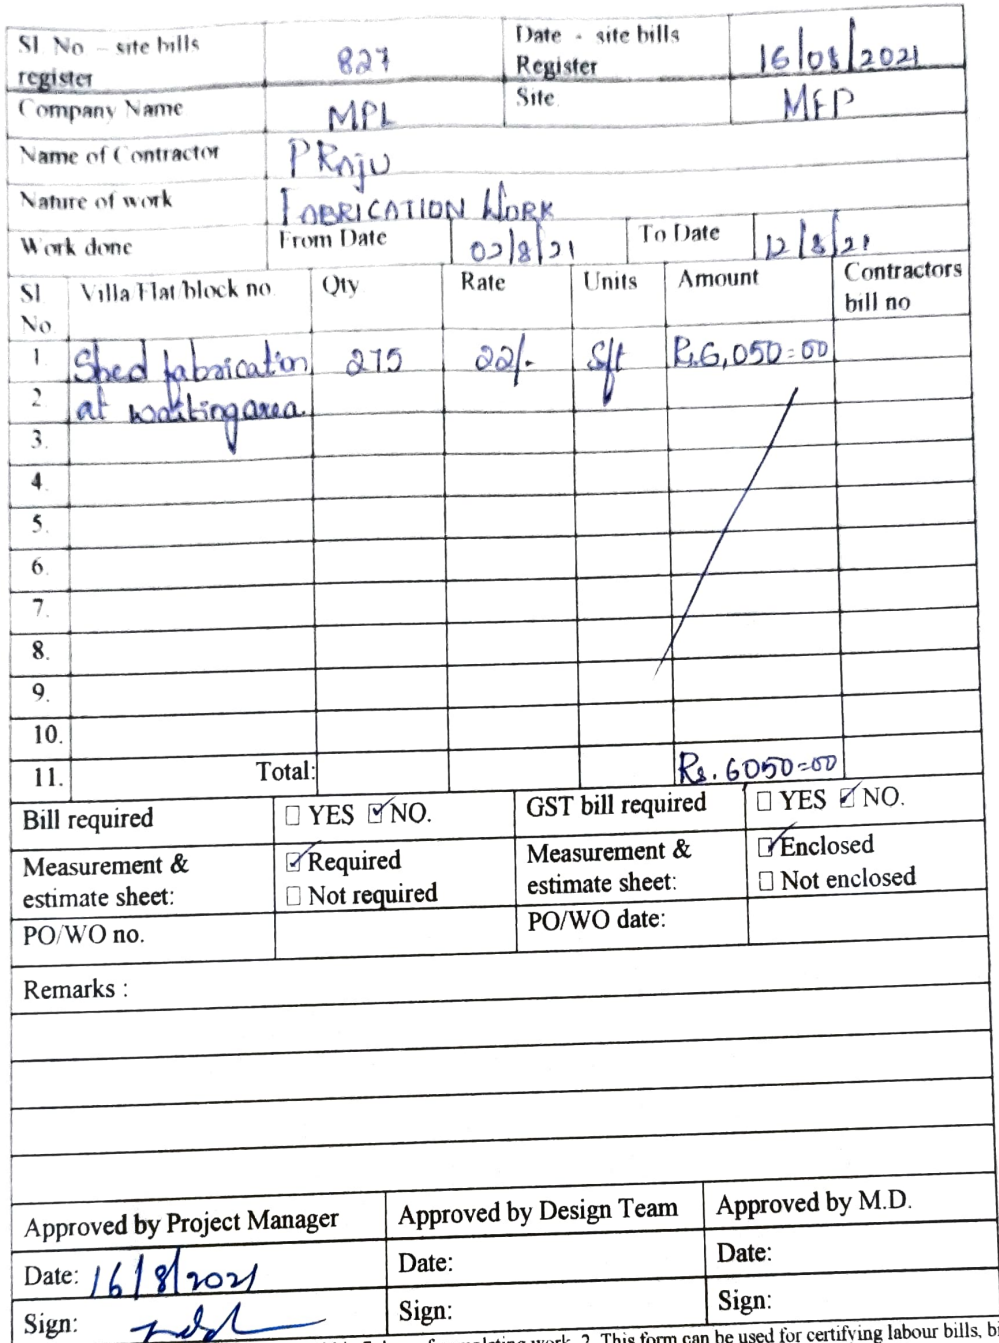 Sl. No – site bills register 827 Date - site bills Register 16/08/2021
Company Name MPL Site MFP
Name of Contractor P Raju
Nature of work FABRICATION WORK
Work done From Date 02/8/21 To Date 12/8/21
Sl No Villa/Flat/block no. Qty Rate Units Amount Contractors bill no
1 Shed fabrication 275 22/- Sft Rs.6,050=00
2 at waiting area.
3.
4.
5.
6.
7.
8.
9.
10.
11. Total: Rs. 6050=00
Bill required ☐ YES ☑ NO. GST bill required ☐ YES ☑ NO.
Measurement & estimate sheet: ☑ Required ☐ Not required Measurement & estimate sheet: ☑ Enclosed ☐ Not enclosed
PO/WO no. PO/WO date:
Remarks :
Approved by Project Manager Approved by Design Team Approved by M.D.
Date: 16/8/2021 Date: Date:
Sign: Sign: Sign:
work. 2. This form can be used for certifying labour bills,